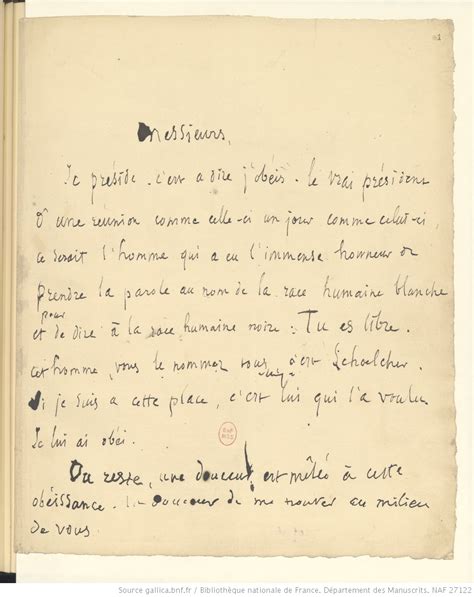 Messieurs,
Je préside, c'est à dire j'obéis. le vrai président
d'une réunion comme celle-ci un jour comme celui-ci,
ce serait l'homme qui a eu l'immense honneur de
prendre la parole au nom de la race humaine blanche
pour
et de dire à la race humaine noire : Tu es libre.
cet homme, vous le nommez tous, c'est Schoelcher.
Si je suis à cette place, c'est lui qui l'a voulu
Je lui ai obéi.
Du reste, une douceur est mêlée à cette
obéissance. la douceur de me trouver au milieu
de vous.
Source gallica.bnf.fr / Bibliothèque nationale de France. Département des Manuscrits. NAF 27122